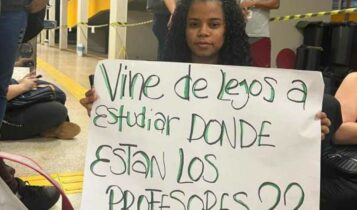 Vine de Lejos a
Estudiar DONDE
ESTAN LOS
PROFESORES??